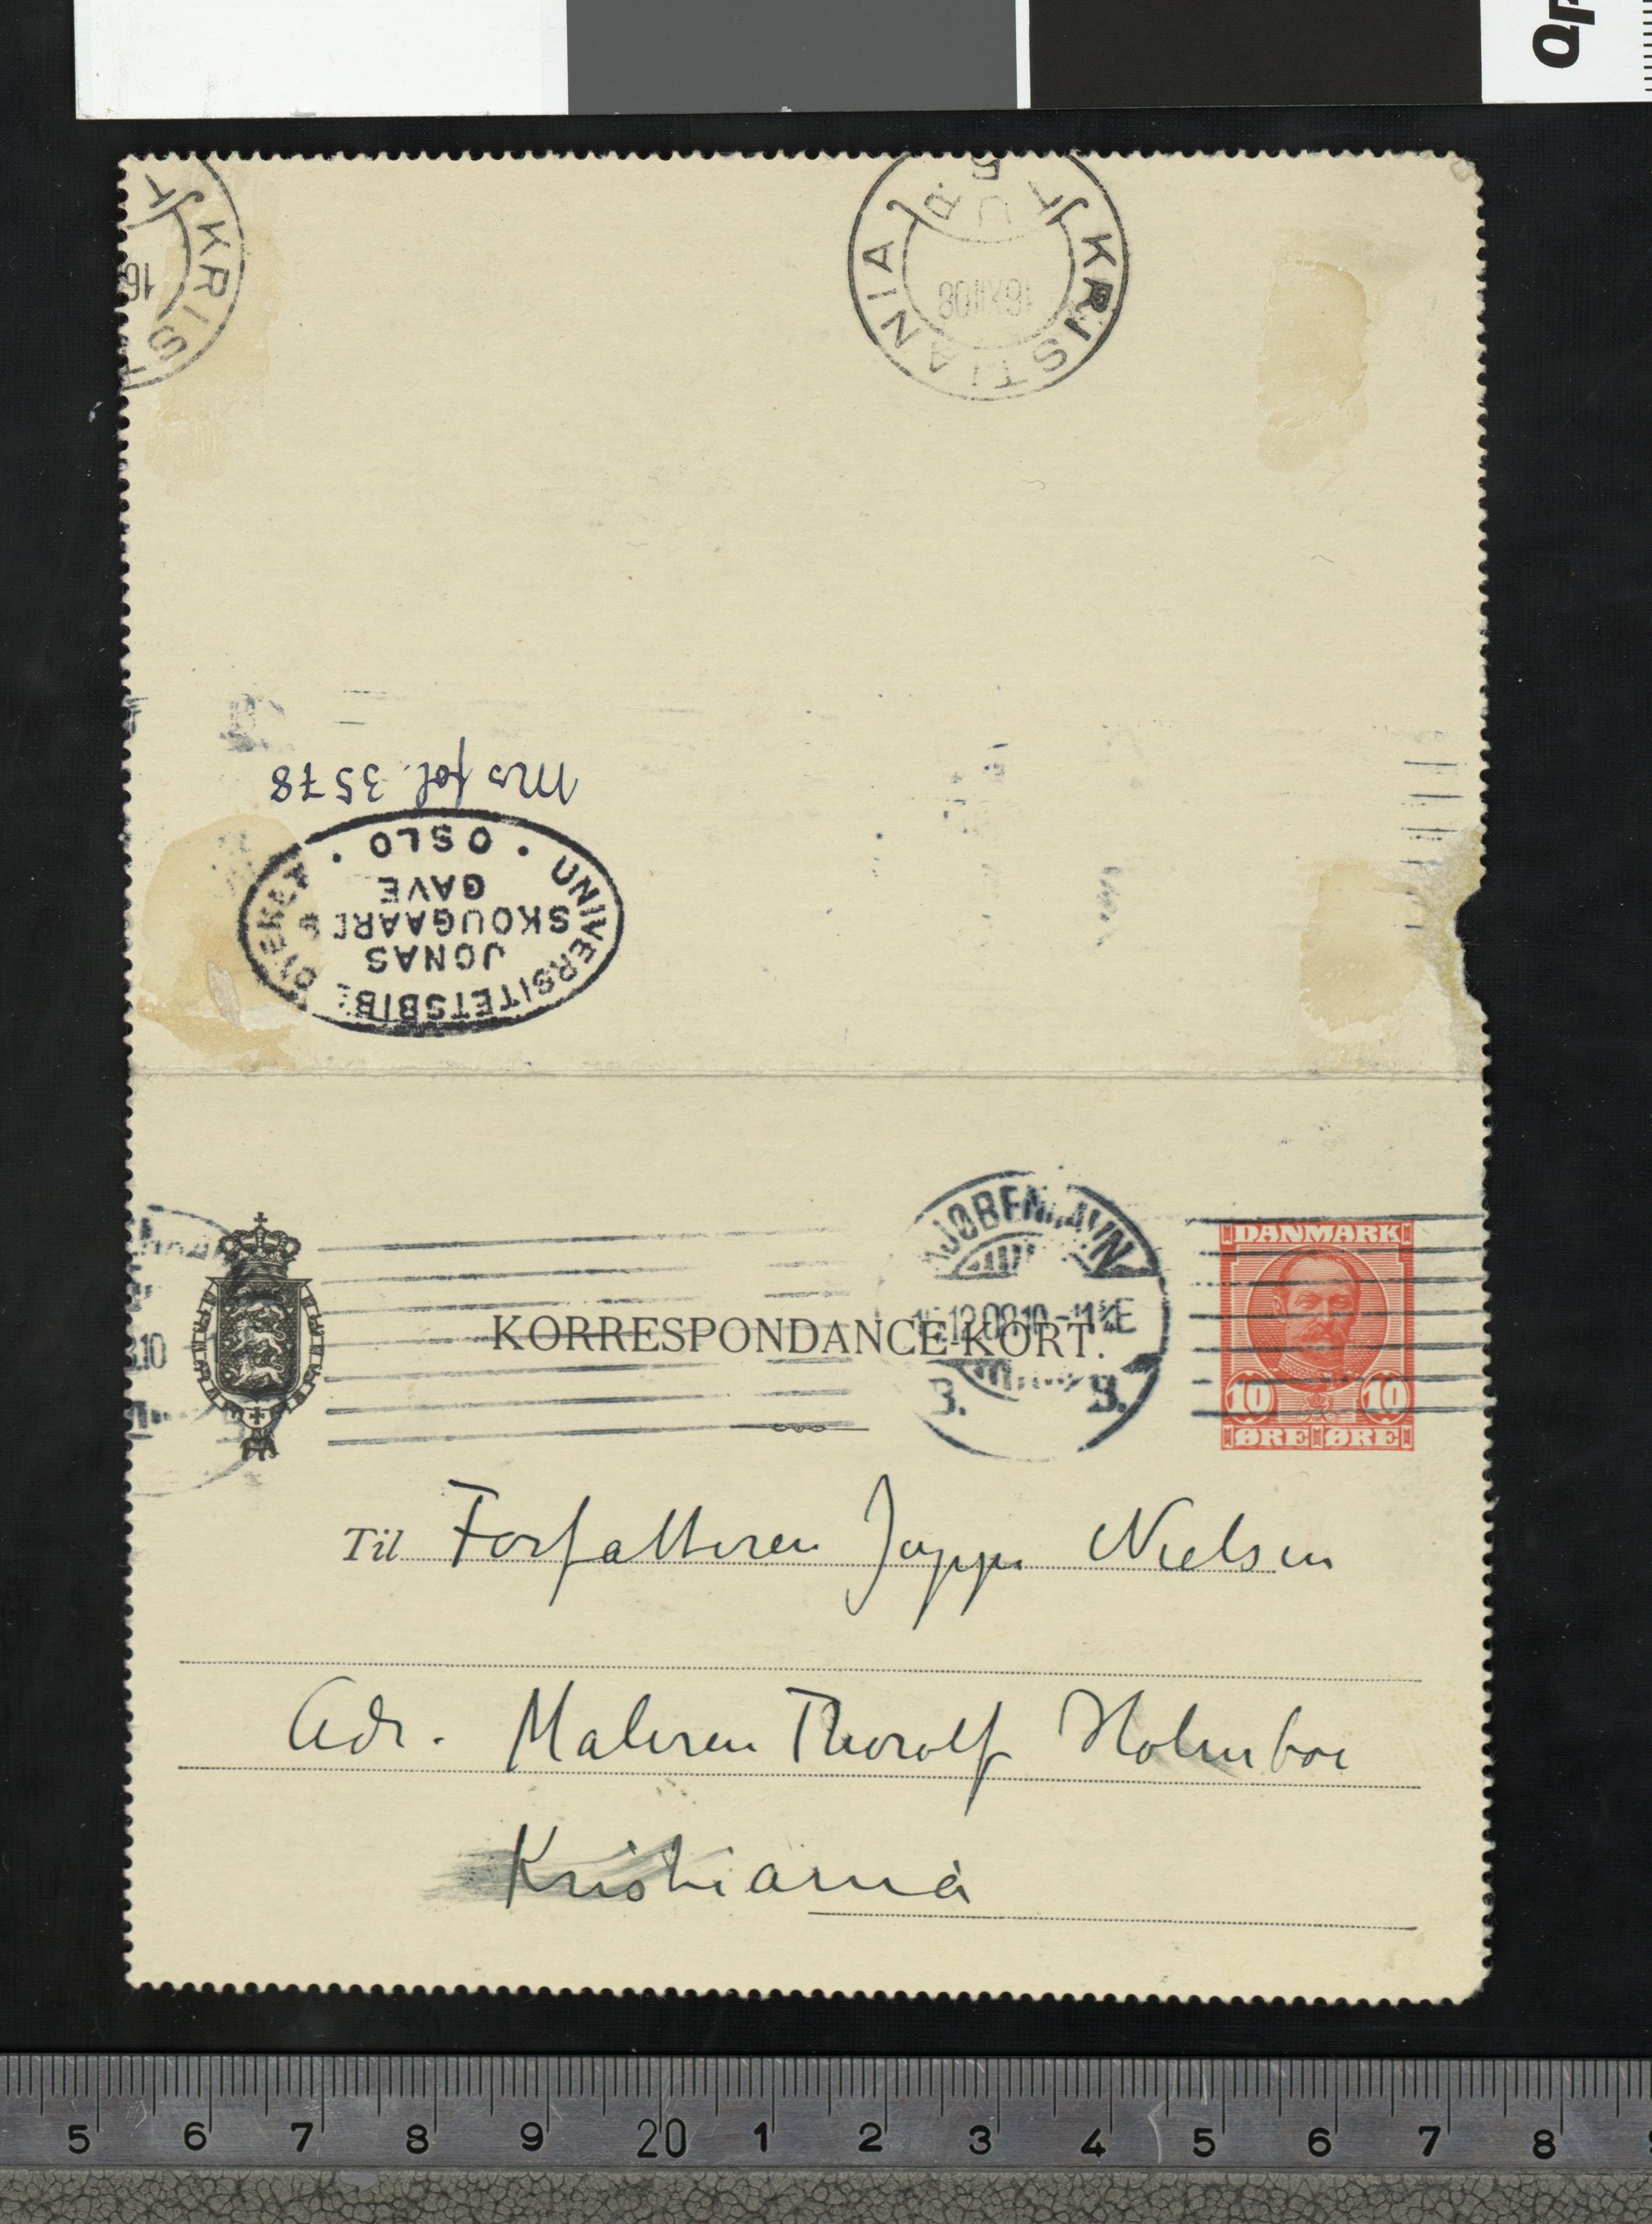 KRIST
16
KRISTIANIA
16 XII 08
Ms fol. 3578
UNIVERSITETSBIB
OSLO
JONAS
SKOUGAARD
GAVE
KJØBENHAVN
15.12.08 10-11 ½ E
B. B.
DANMARK
10 10
ØRE ØRE
KORRESPONDANCE-KORT.
Til Forfatteren Jappe Nielsen
Adr. Maleren Thorolf Holmboe
Kristiania
5 6 7 8 9 20 1 2 3 4 5 6 7 8